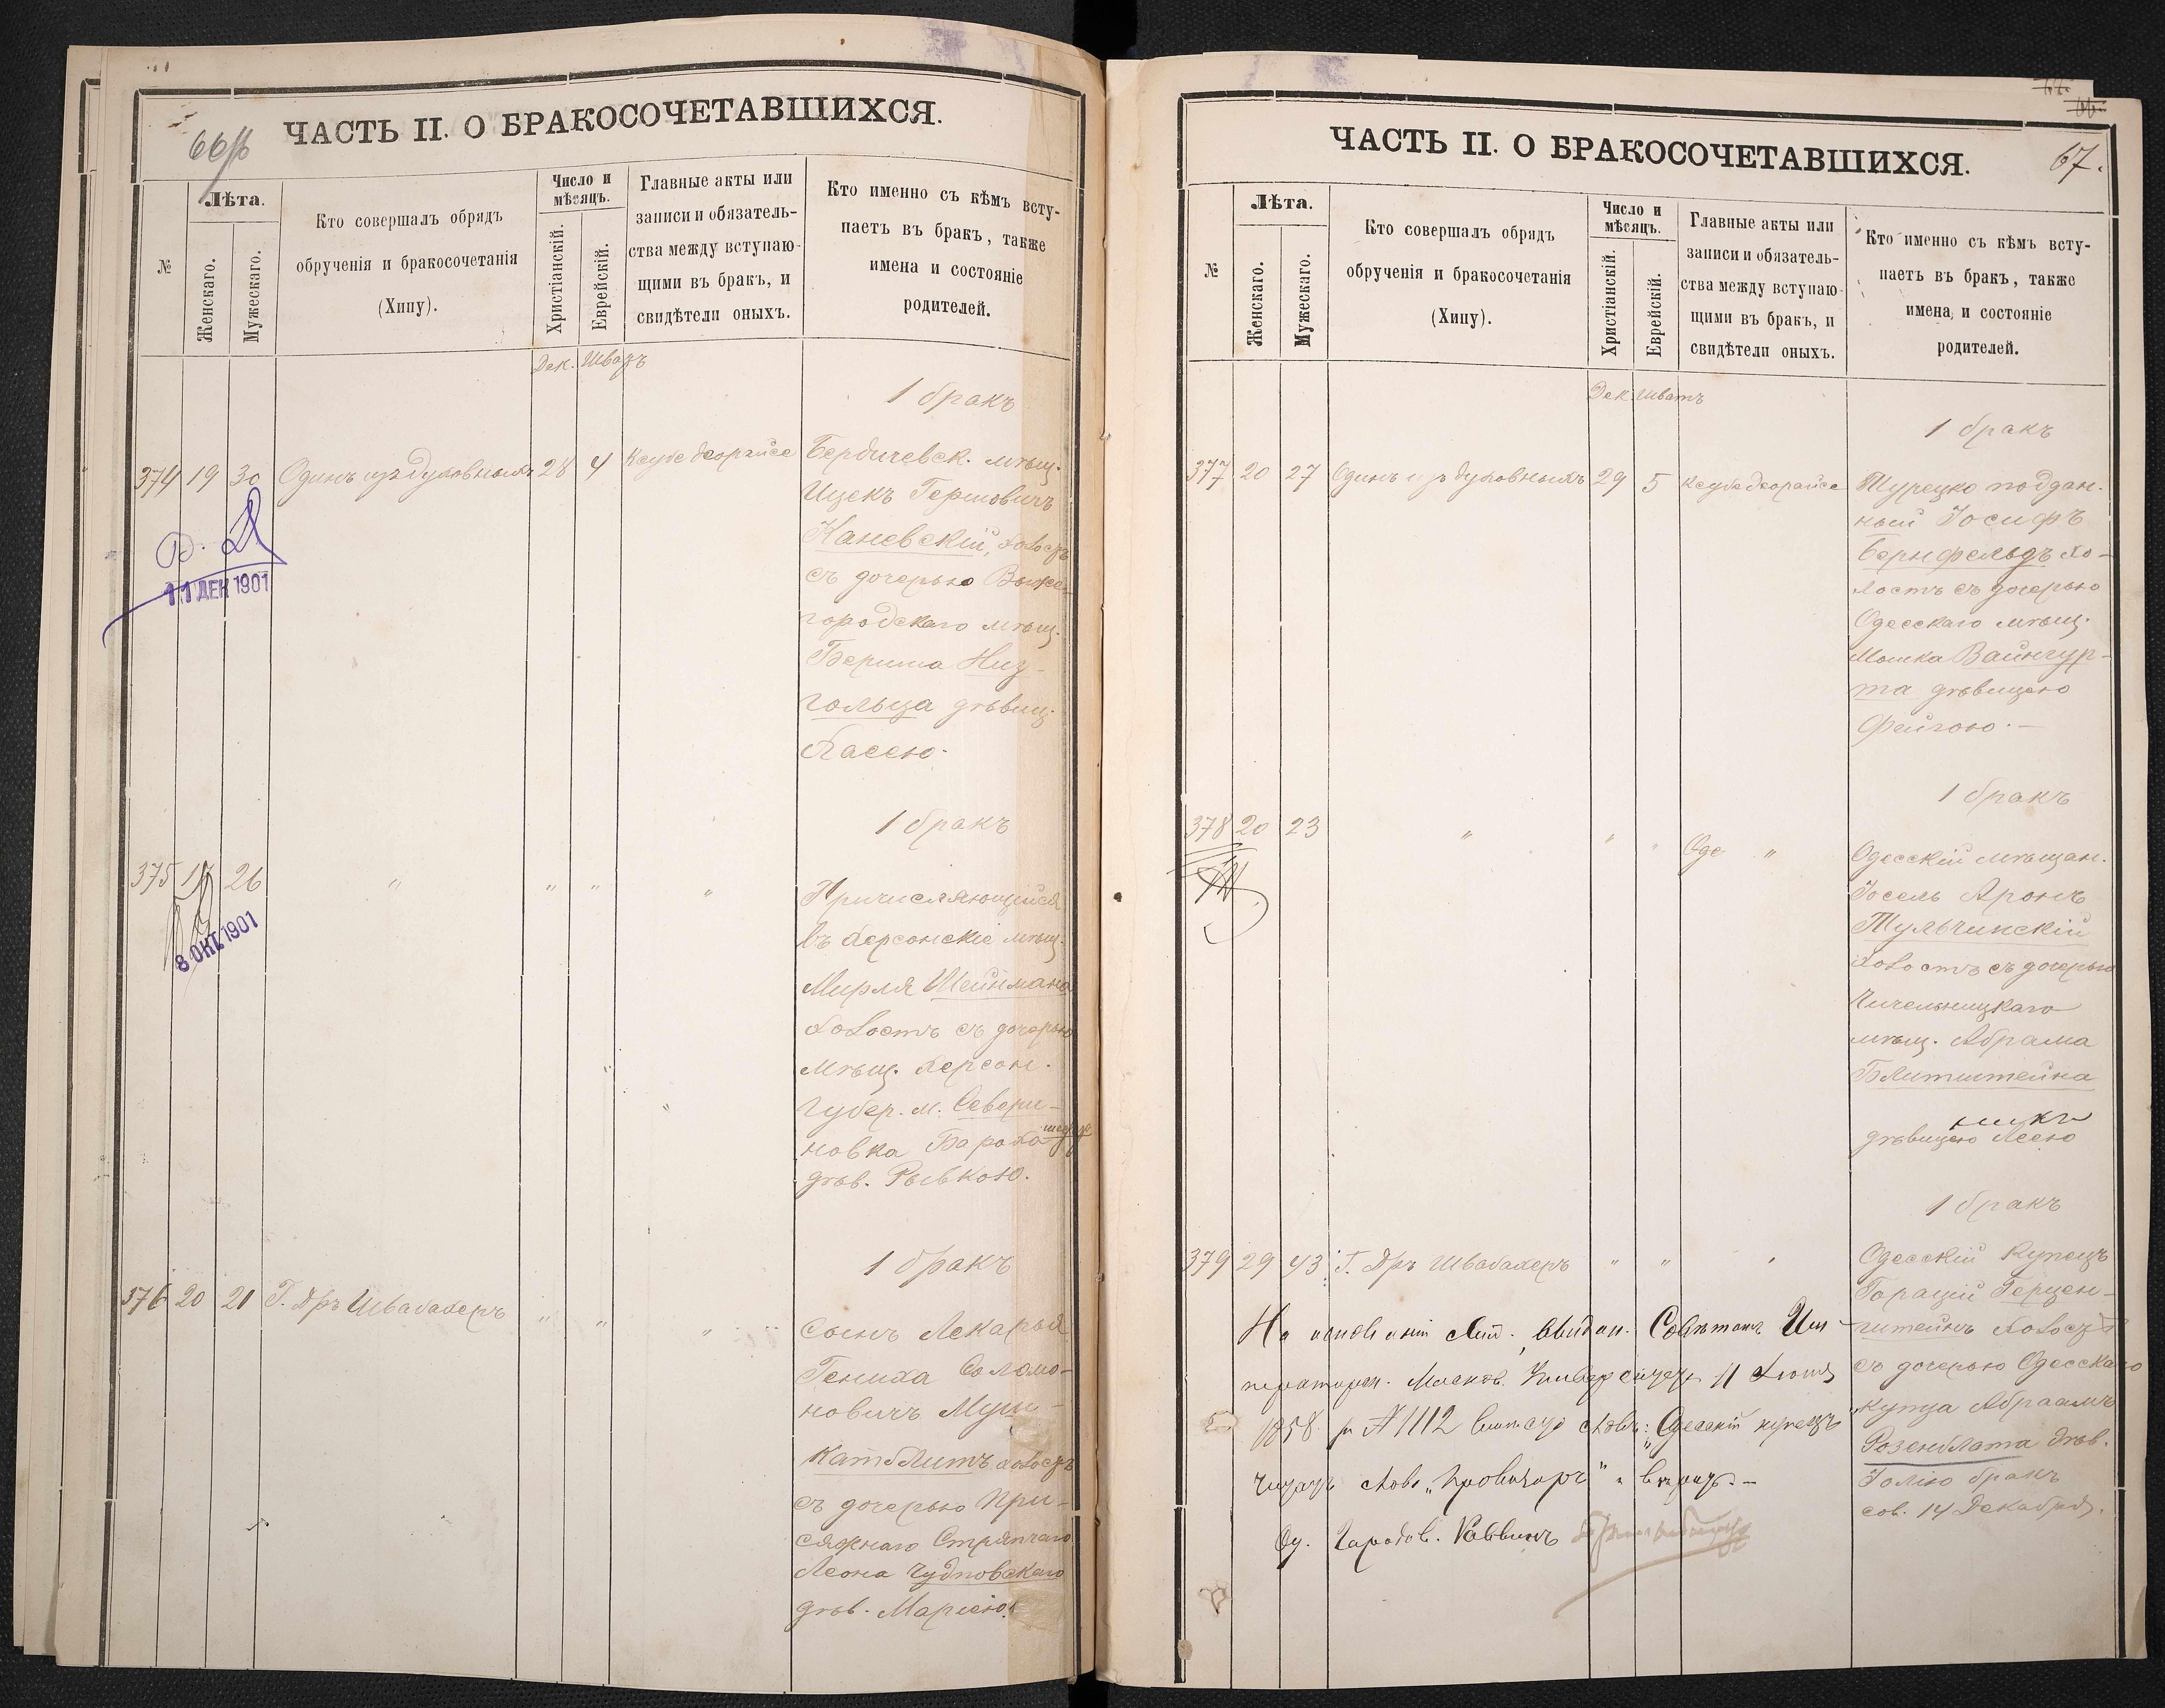 66/б
ЧАСТЬ II. О БРАКОСОЧЕТАВШИХСЯ.
№
Лѣта.
Женскаго.
Мужескаго.
Кто совершалъ обрядъ
обрученія и бракосочетанія
(Хипу).
Число и
мѣсяцъ.
Христіанскій.
Еврейскій.
Главные акты или
записи и обязатель-
ства между вступаю-
щими въ бракъ, и
свидѣтели оныхъ.
Кто именно съ кѣмъ всту-
паетъ въ бракъ, также
имена и состояніе
родителей.
Дек. Шватъ
1 бракъ
374 19 30 Одинъ изъ духовныхъ 28 4 Ксубе деорайсе Бердичевск. мѣщ.
Ицекъ Гершовичъ
Каневскій, холостъ
съ дочерью Выше-
городскаго мѣщ.
Бериша Низ-
гольца дѣвиц.
Хасею.
11 ДЕК 1901
1 бракъ
375 26 " " " "
Причисляющійся
въ Херсонскіе мѣщ.
Мирля Шейнмана
холостъ съ дочерью
мѣщ. Херсон.
губер. м. Севери-
новка Бароха
дѣв. Рывкою.
8 ОКТ 1901
1 бракъ
376 20 21 Г. Дръ Швабахеръ " " "
Сынъ Лекаря
Гениха Соломо-
новичъ Муш-
катблитъ холостъ
съ дочерью При-
сяжнаго Стряпчаго
Леона Чудновскаго
дѣв. Маріею.
67.
ЧАСТЬ II. О БРАКОСОЧЕТАВШИХСЯ.
№
Лѣта.
Женскаго.
Мужескаго.
Кто совершалъ обрядъ
обрученія и бракосочетанія
(Хипу).
Число и
мѣсяцъ.
Христіанскій.
Еврейскій.
Главные акты или
записи и обязатель-
ства между вступаю-
щими въ бракъ, и
свидѣтели оныхъ.
Кто именно съ кѣмъ всту-
паетъ въ бракъ, также
имена и состояніе
родителей.
Дек. Шватъ
1 бракъ
377 20 27 Одинъ изъ духовныхъ 29 5 Ксубе деорайсе Турецко поддан-
ный Іосифъ
Бернфельдъ хо-
лостъ съ дочерью
Одесскаго мѣщ.
Мошка Вайнгур-
та дѣвицею
Фейгою. —
1 бракъ
378 20 23 " " " Оде "
Одесскій мѣщан.
Іосель Аронъ
Тульчинскій
холостъ съ дочерью
Чичельницкаго
мѣщ. Абрама
Блитштейна
дѣвицею Леею
1 бракъ
379 29 43 Г. Дръ Швабахеръ " " " Одесскій Купецъ
Горацій Герцен-
штейнъ холостъ
съ дочерью Одесскаго
купца Абраамъ
Розенблата дѣв.
Юлію бракъ
сов. 14 Декабря.
На основаніи выдан. Совѣтомъ Им-
ператорск. Москов. Университ. 11 Іюня
1858 № 1112 слов: „Одесскій купецъ"
читать слово „Провизоръ" и вѣрить. —
Од. Городов. Раввинъ